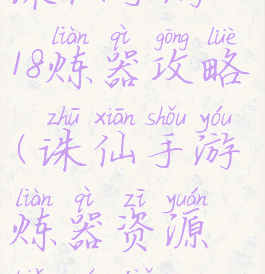 liàn qì gōng lüè
18炼器攻略
zhū xiān shǒu yóu
(诛仙手游
liàn qì zī yuán
炼器资源